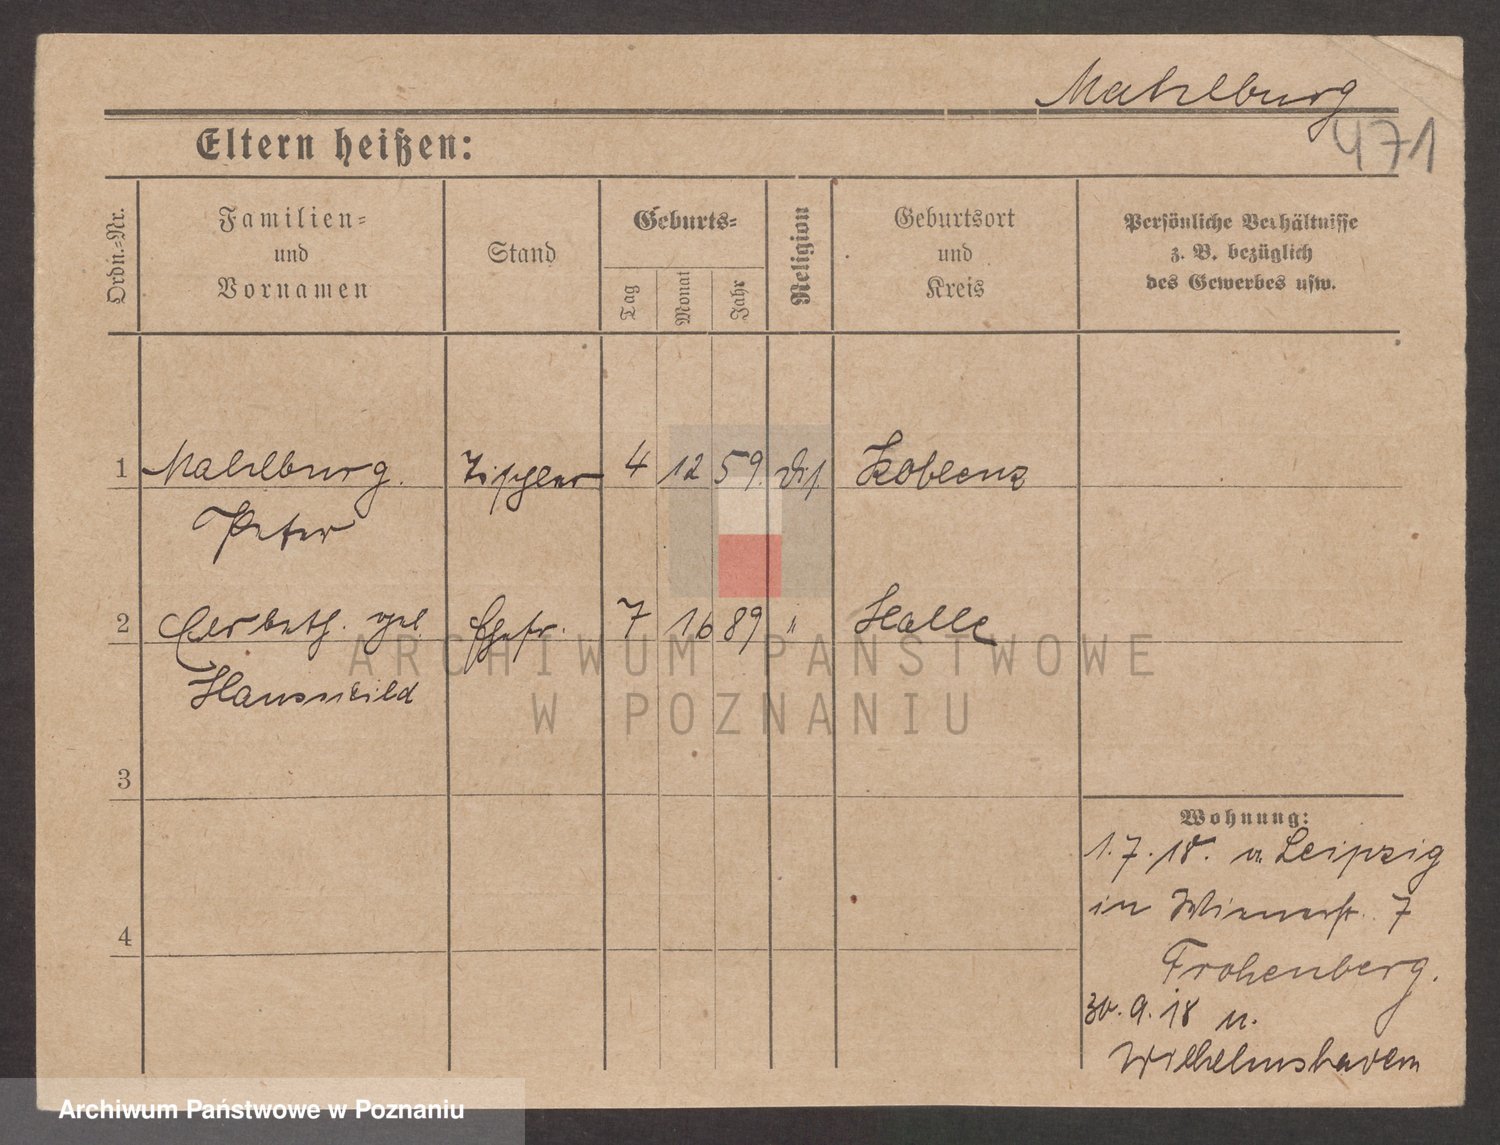 Mahlburg
471
Eltern heißen:
Ordn.-Nr.
Familien-
und
Vornamen
Stand
Geburts-
Tag
Monat
Jahr
Religion
Geburtsort
und
Kreis
Persönliche Verhältnisse
z. B. bezüglich
des Gewerbes usw.
1 Mahlburg. Tischler 4 12 59. diss. Koblenz
Peter
2 geb. Ehefr. 7 89 " Halle
3
4
Wohnung:
1.7.18. v. Leipzig
in Wienerstr. 7
Frohenberg.
30.9.18 n.
Wilhelmshaven
ARCHIWUM PAŃSTWOWE
W POZNANIU
Archiwum Państwowe w Poznaniu